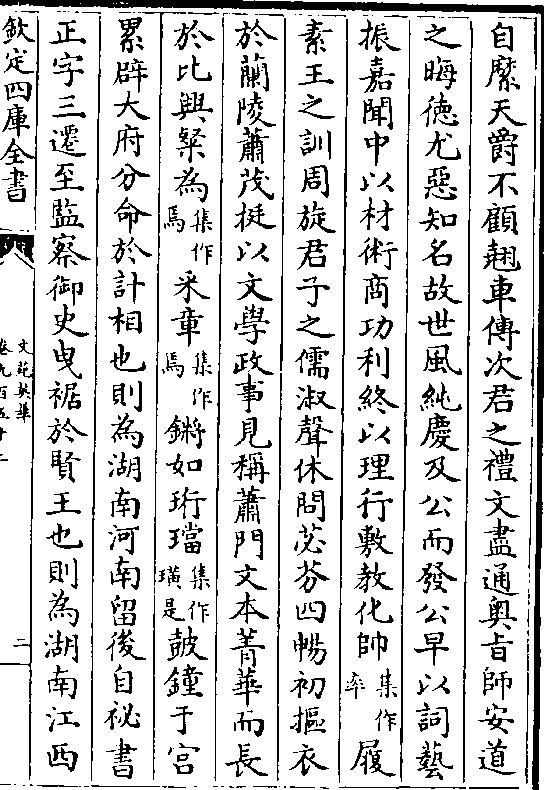 自縻天爵不顧翹車傳次君之禮文盡通奥旨師安道
之晦徳尤惡知名故世風純慶及公而發公早以詞藝
振嘉聞中以材術商功利終以理行敷教化帥集作率履
素王之訓周旋君子之儒淑聲休問苾芬四暢初摳衣
於蘭陵蕭茂挺以文學政事見稱蕭門文本菁華而長
於比興粲為集作焉采章集作焉鏘如珩璫集作璜是鼓鐘于宫
累辟大府分命於計相也則為湖南河南留後自祕書
正字三遷至監察御史曳裾於賢王也則為湖南江西
欽定四庫全書
文苑英華
卷九百五十二
二